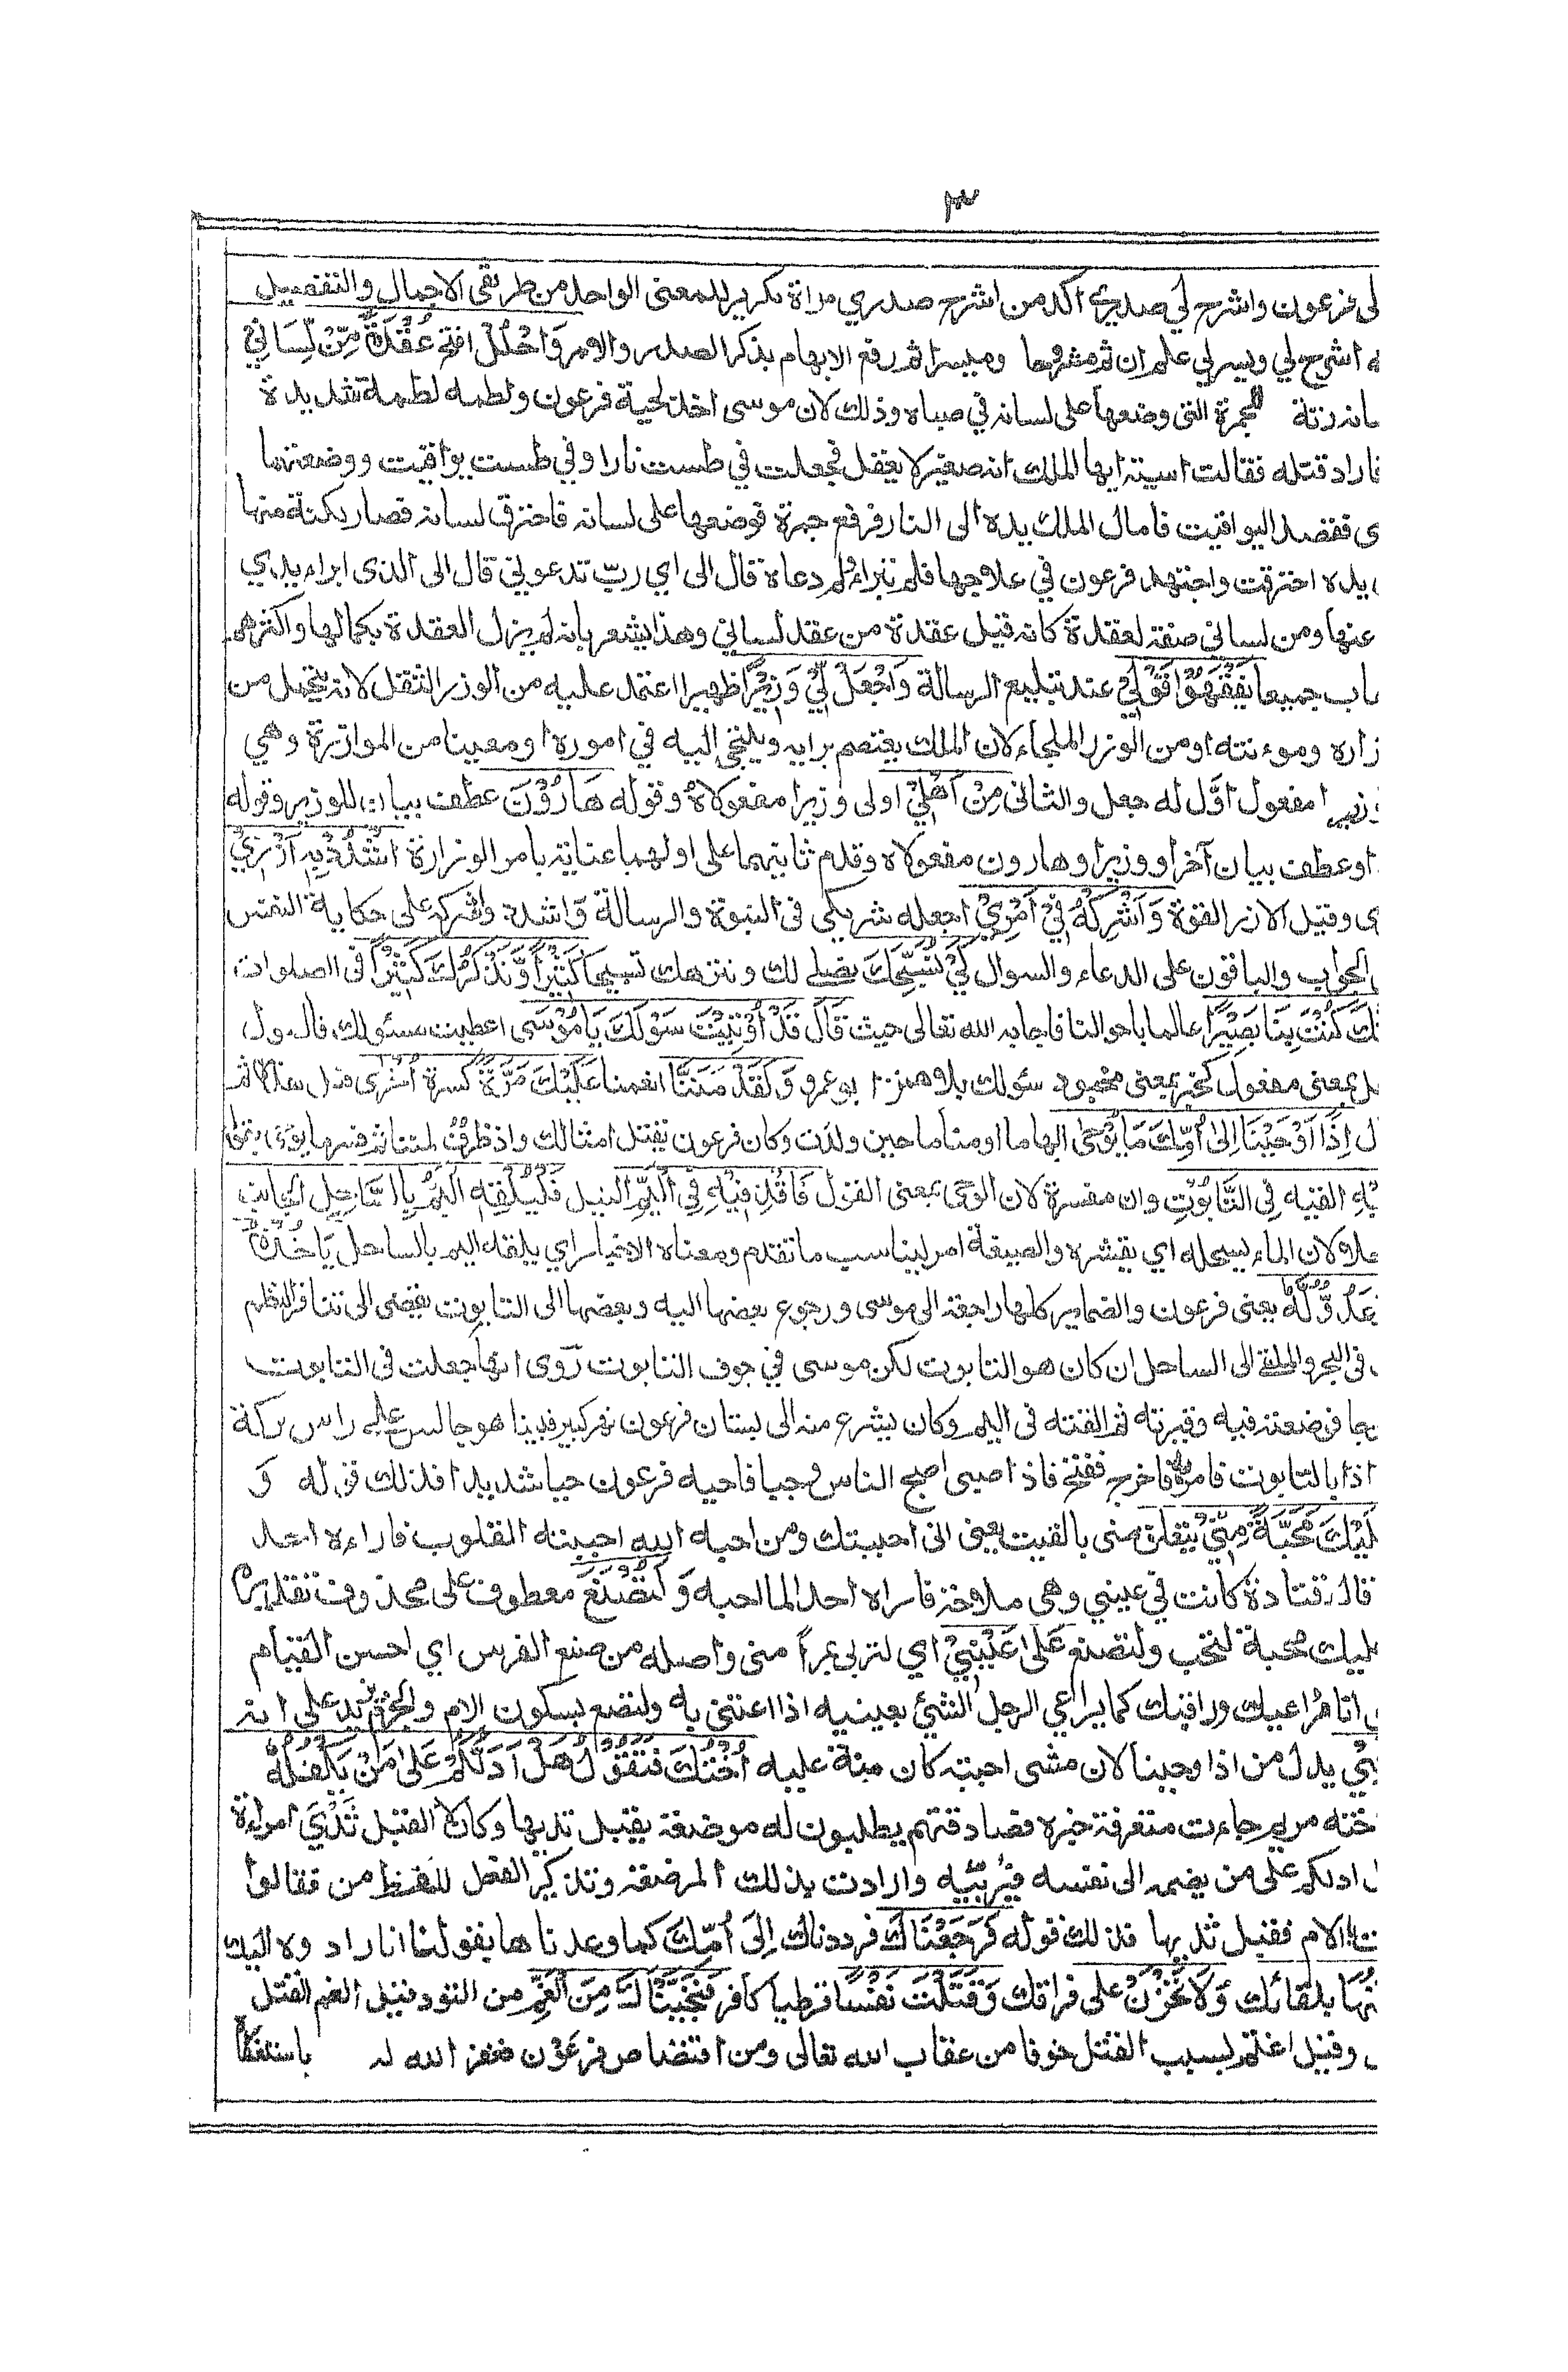 ٣
لى فرعون واشرح لي صدري آكد من اشرح صدري مراة تكرير للمعنى الواحد من طريقى الاجمال والتفصيل
ه اشرح لي ويسر لي علم ان ثم مشروحا وميسرا ثم رفع الابهام بذكر الصدر والامر وَاحْلُلْ افتح عُقْدَةً مِّنْ لِّسَانِيْ
سانه رتة للجمرة التى وضعها على لسانه في صباه وذلك لان موسى اخذ لحية فرعون ولطمه لطمة شديدة
فاراد قتله فقالت اسية ايها الملك انه صغير لا يعقل فجعلت في طست نارا وفي طست يواقيت ووضعتهما
ى فقصد اليواقيت فامال الملك يده الى النار فرفع جمرة فوضعها على لسانه فاحترق لسانه فصار بكنة منها
يده احترقت واجتهد فرعون في علاجها فلم تبراء ولم دعاه قال الى اي ربّ تدعوني قال الى الذى ابراء يدي
عنها ومن لساني صفة لعقدة كانه قيل عقدة من عقد لساني وهذا يشعر بانه لم يزل العقدة بكمالها واكثرهم
اب جميعا يَفْقَهُوْا قَوْلِيْ عند تبليغ الرسالة وَاجْعَلْ لِّيْ وَزِيْرًا ظهيرا اعتمد عليه من الوزر الثقل لانه يتحمل من
زاره وموءنته او من الوزر الملجاء لان الملك يعتصم برايه ويلتجى اليه في اموره او معينا من الموازرة وهي
وزيرا مفعول اوّل له جعل والثانى مِنْ اَهْلِيْ اولى وزيرا مفعولاه وقوله هَارُوْنَ عطف بيان للوزير وقوله
او عطف بيان آخر او وزيرا وهارون مفعولاه وقدم ثانيهما على اولهما عناية بامر الوزارة اشْدُدْ بِهٖ اَزْرِيْ
ى وقيل الازر القوة وَاَشْرِكْهُ فِيْ اَمْرِيْ اجعله شريكى فى النبوة والرسالة واشدد واشركه على حكاية النفس
الجواب والباقون على الدعاء والسوال كَيْ نُسَبِّحَكَ نصلے لك وننزهك تسبيحا كَثِيْرًا وَّنَذْكُرَكَ كَثِيْرًا فى الصلوات
نَّكَ كُنْتَ بِنَا بَصِيْرًا عالما باحوالنا فاجابه الله تعالى حيث قَالَ قَدْ اُوْتِيْتَ سَوْلَكَ يَا مُوْسَى اعطيت مسئولك
ل بمعنى مفعول كخبز بمعنى مخبوز سئولك بلا همز ابو عمرو وَلَقَدْ مَنَنَّا انعمنا عَلَيْكَ مَرَّةً كسرة اُخْرٰى
ل اِذْا اَوْحَيْنَا اِلٰى اُمِّكَ مَا يُوْحٰى الهاما او مناما حين ولدت وكان فرعون يقتل امثالك واذ ظرف لمننا ثم فسر ما يوحى
يْهِ القيه فِى التَّابُوْتِ وان مفسرة لان الوحى بمعنى القول فَاقْذِفِيْهِ فِي الْيَمِّ النيل فَلْيُلْقِهِ الْيَمُّ بِالسَّاحِلِ الجانب
لان الماء يسحله اي يقشره والصيغة امر ليناسب ما تقدم ومعناه الاخبار اي يلقه اليم بالساحل يَاْخُذْهُ
عَدُوٌّ لَّهٗ يعنى فرعون والضماير كلها راجعة الى موسى ورجوع بعضها اليه وبعضها الى التابوت يفضى الى تنافر النظم
فى البحر والملقے الى الساحل ان كان هو التابوت لكن موسى في جوف التابوت رُوى انها جعلت فى التابوت
فوضعته فيه وقيرته ثم القته فى اليم وكان يشرع منه الى بستان فرعون نهر كبير فبينا هو جالس علے راس بركة
اذا بالتابوت فامر به فاخرج ففتح فاذا صبى اصبح الناس وجها فاحبه فرعون حبا شديدا فذلك قوله وَ
لَيْكَ مَحَبَّةً مِّنِّيْ يتعلق منى بالقيت يعنى انى احببتك ومن احبه الله احبته القلوب فما راءه احد
قال قتادة كانت في عيني وهى ملاحة فما راه احد الا احبه وَلِتُصْنَعَ معطوف على محذوف تقديره
عليك محبة لتحب ولتصنع عَلٰى عَيْنِيْ اي لتربى بمرأ منى واصله من صنع الفرس اي احسن القيام
انا مراعيك وراقبك كما يراعي الرجل الشئ بعينيه اذا اعتنى به ولتصنع بسكون اللام والجزم يزيد على انه
يْ بدل من اذ اوحينا لان مشى اخته كان منة عليه اُخْتُكَ فَتَقُوْلُ هَلْ اَدُلُّكُمْ عَلٰى مَنْ يَكْفُلُهٗ
خته مريم جاءت متعرفة خبره فصادفتهم يطلبون له مرضعة يقبل ثديها وكان لا يقبل ثَدْيَ امراءة
ل ادلكم على من يضمه الى نفسه فَيُرَبِّيْه وارادت بذلك المرضعة وتذكير الفعل للفظ من فقالوا
ت الام فقبل ثديها فذلك قوله فَرَجَعْنَاكَ فرددناك اِلٰى اُمِّكَ كما وعدناها بقولنا انا رادوه اليك
نُهَا بلقائك وَلَا تَحْزَنْ على فراقك وَقَتَلْتَ نَفْسًا قبطيا كافر فَنَجَّيْنَاكَ مِنَ الْغَمِّ من القود قيل الغم القتل
وقيل اغتم بسبب القتل خوفا من عقاب الله تعالى ومن اقتصاص فرعون فغفر الله له باستغفا